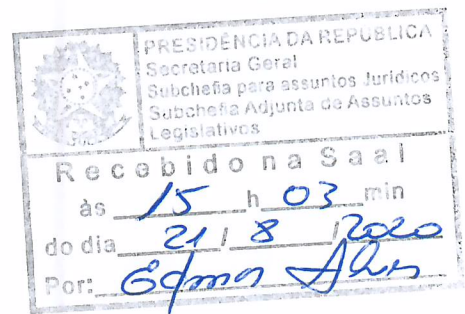 PRESIDÊNCIA DA REPÚBLICA
Secretaria Geral
Subchefia para assuntos Jurídicos
Subchefia Adjunta de Assuntos
Legislativos
Recebido na Saal
às 15 h 03 min
do dia 21 / 8 / 2020
Por: